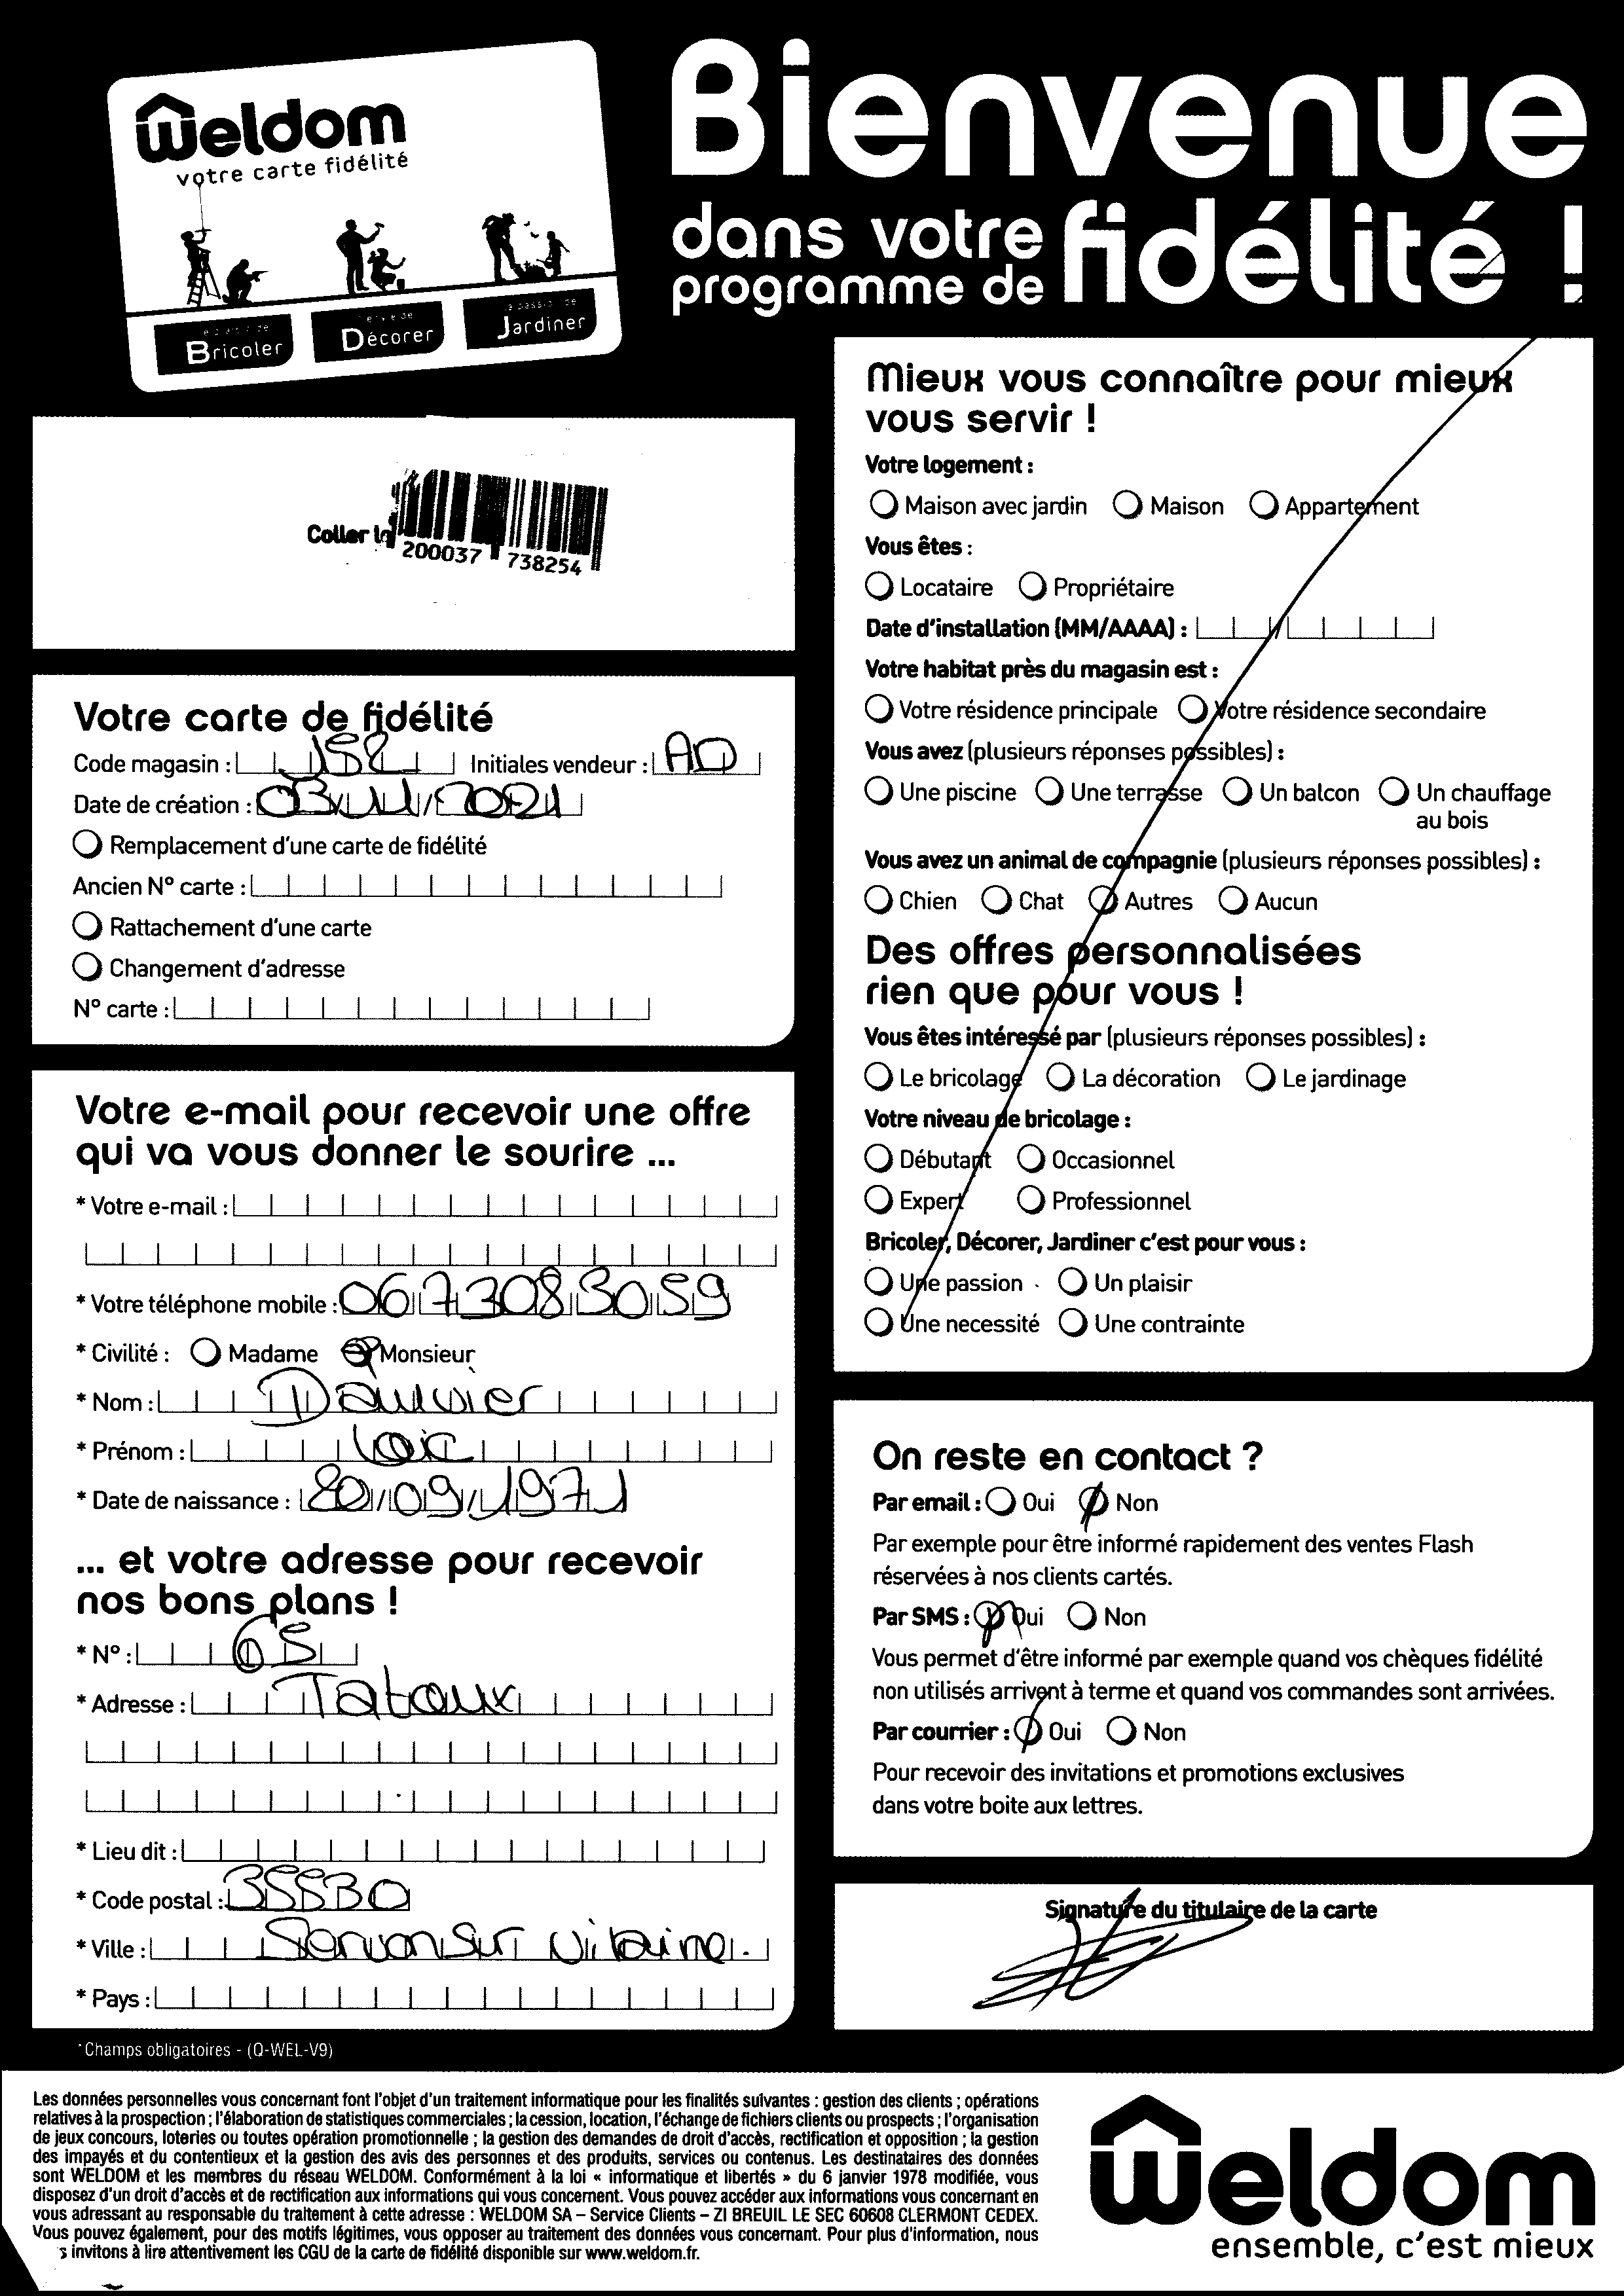 Weldom
votre carte fidélité
Bricoler
Décorer
Jardiner
Bienvenue
dans votre
programme de fidélité !
Coller la
200037 738254
Votre carte de fidélité
Code magasin : 152 Initiales vendeur : AD
Date de création : 03/11/2021
Remplacement d'une carte de fidélité
Ancien N° carte :
Rattachement d'une carte
Changement d'adresse
N° carte :
Votre e-mail pour recevoir une offre
qui va vous donner le sourire ...
* Votre e-mail :
* Votre téléphone mobile : 0673083059
* Civilité : Madame Monsieur
* Nom : Dauvier
* Prénom : Loic
* Date de naissance : 20/09/1971
... et votre adresse pour recevoir
nos bons plans !
* N° : 65
* Adresse : Tatoux
* Lieu dit :
* Code postal : 35530
* Ville : Servon sur Vilaine.
* Pays :
*Champs obligatoires - (Q-WEL-V9)
Mieux vous connaître pour mieux
vous servir !
Votre logement :
Maison avec jardin Maison Appartement
Vous êtes :
Locataire Propriétaire
Date d'installation (MM/AAAA) : /
Votre habitat près du magasin est :
Votre résidence principale Votre résidence secondaire
Vous avez (plusieurs réponses possibles) :
Une piscine Une terrasse Un balcon Un chauffage
au bois
Vous avez un animal de compagnie (plusieurs réponses possibles) :
Chien Chat Autres Aucun
Des offres personnalisées
rien que pour vous !
Vous êtes intéressé par (plusieurs réponses possibles) :
Le bricolage La décoration Le jardinage
Votre niveau de bricolage :
Débutant Occasionnel
Expert Professionnel
Bricoler, Décorer, Jardiner c'est pour vous :
Une passion Un plaisir
Une necessité Une contrainte
On reste en contact ?
Par email : Oui Non
Par exemple pour être informé rapidement des ventes Flash
réservées à nos clients cartés.
Par SMS : Oui Non
Vous permet d'être informé par exemple quand vos chèques fidélité
non utilisés arrivent à terme et quand vos commandes sont arrivées.
Par courrier : Oui Non
Pour recevoir des invitations et promotions exclusives
dans votre boite aux lettres.
Signature du titulaire de la carte
Les données personnelles vous concernant font l'objet d'un traitement informatique pour les finalités suivantes : gestion des clients ; opérations
relatives à la prospection ; l'élaboration de statistiques commerciales ; la cession, location, l'échange de fichiers clients ou prospects ; l'organisation
de jeux concours, loteries ou toutes opération promotionnelle ; la gestion des demandes de droit d'accès, rectification et opposition ; la gestion
des impayés et du contentieux et la gestion des avis des personnes et des produits, services ou contenus. Les destinataires des données
sont WELDOM et les membres du réseau WELDOM. Conformément à la loi « informatique et libertés » du 6 janvier 1978 modifiée, vous
disposez d'un droit d'accès et de rectification aux informations qui vous concernent. Vous pouvez accéder aux informations vous concernant en
vous adressant au responsable du traitement à cette adresse : WELDOM SA – Service Clients – ZI BREUIL LE SEC 60608 CLERMONT CEDEX.
Vous pouvez également, pour des motifs légitimes, vous opposer au traitement des données vous concernant. Pour plus d'information, nous
s invitons à lire attentivement les CGU de la carte de fidélité disponible sur www.weldom.fr.
Weldom
ensemble, c'est mieux